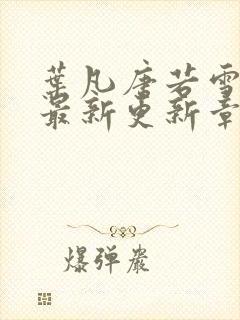 葉凡唐若雪
最新更新章
爆弹岩